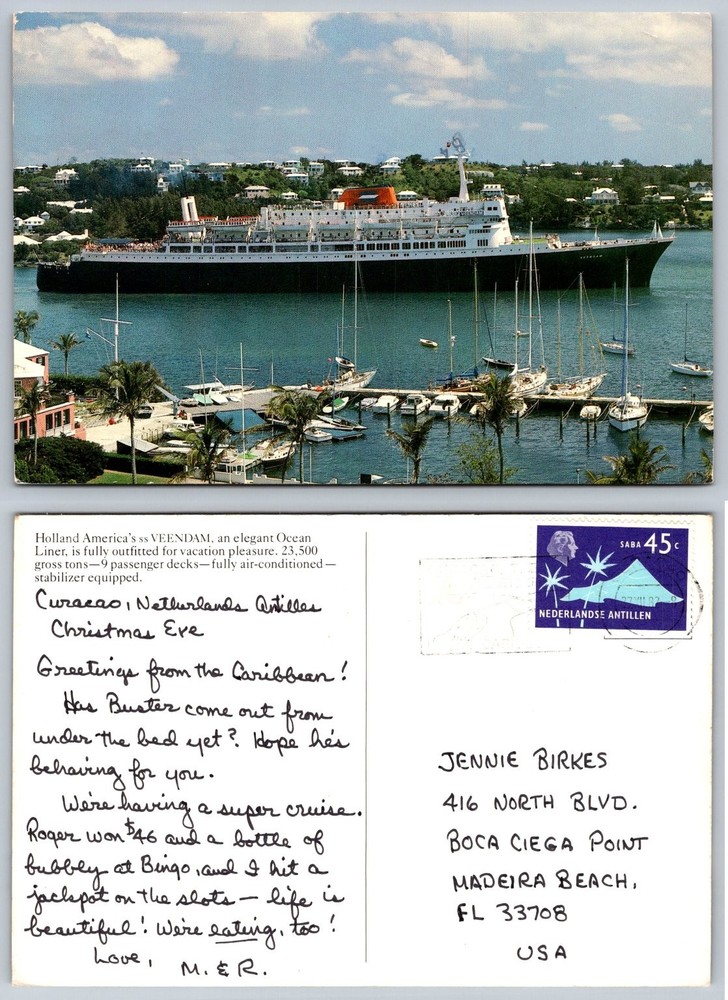 VEENDAM
Holland America's ss VEENDAM, an elegant Ocean
Liner, is fully outfitted for vacation pleasure. 23,500
gross tons—9 passenger decks—fully air-conditioned—
stabilizer equipped.
Curacao, Netherlands Antilles
Christmas Eve
Greetings from the Caribbean!
Has Buster come out from
under the bed yet? Hope he's
behaving for you.
We're having a super cruise.
Roger won $46 and a bottle of
bubbly at Bingo, and I hit a
jackpot on the slots — life is
beautiful! We're eating, too!
Love,
M. & R.
SABA 45 c
NEDERLANDSE ANTILLEN
JENNIE BIRKES
416 NORTH BLVD.
BOCA CIEGA POINT
MADEIRA BEACH,
FL 33708
USA